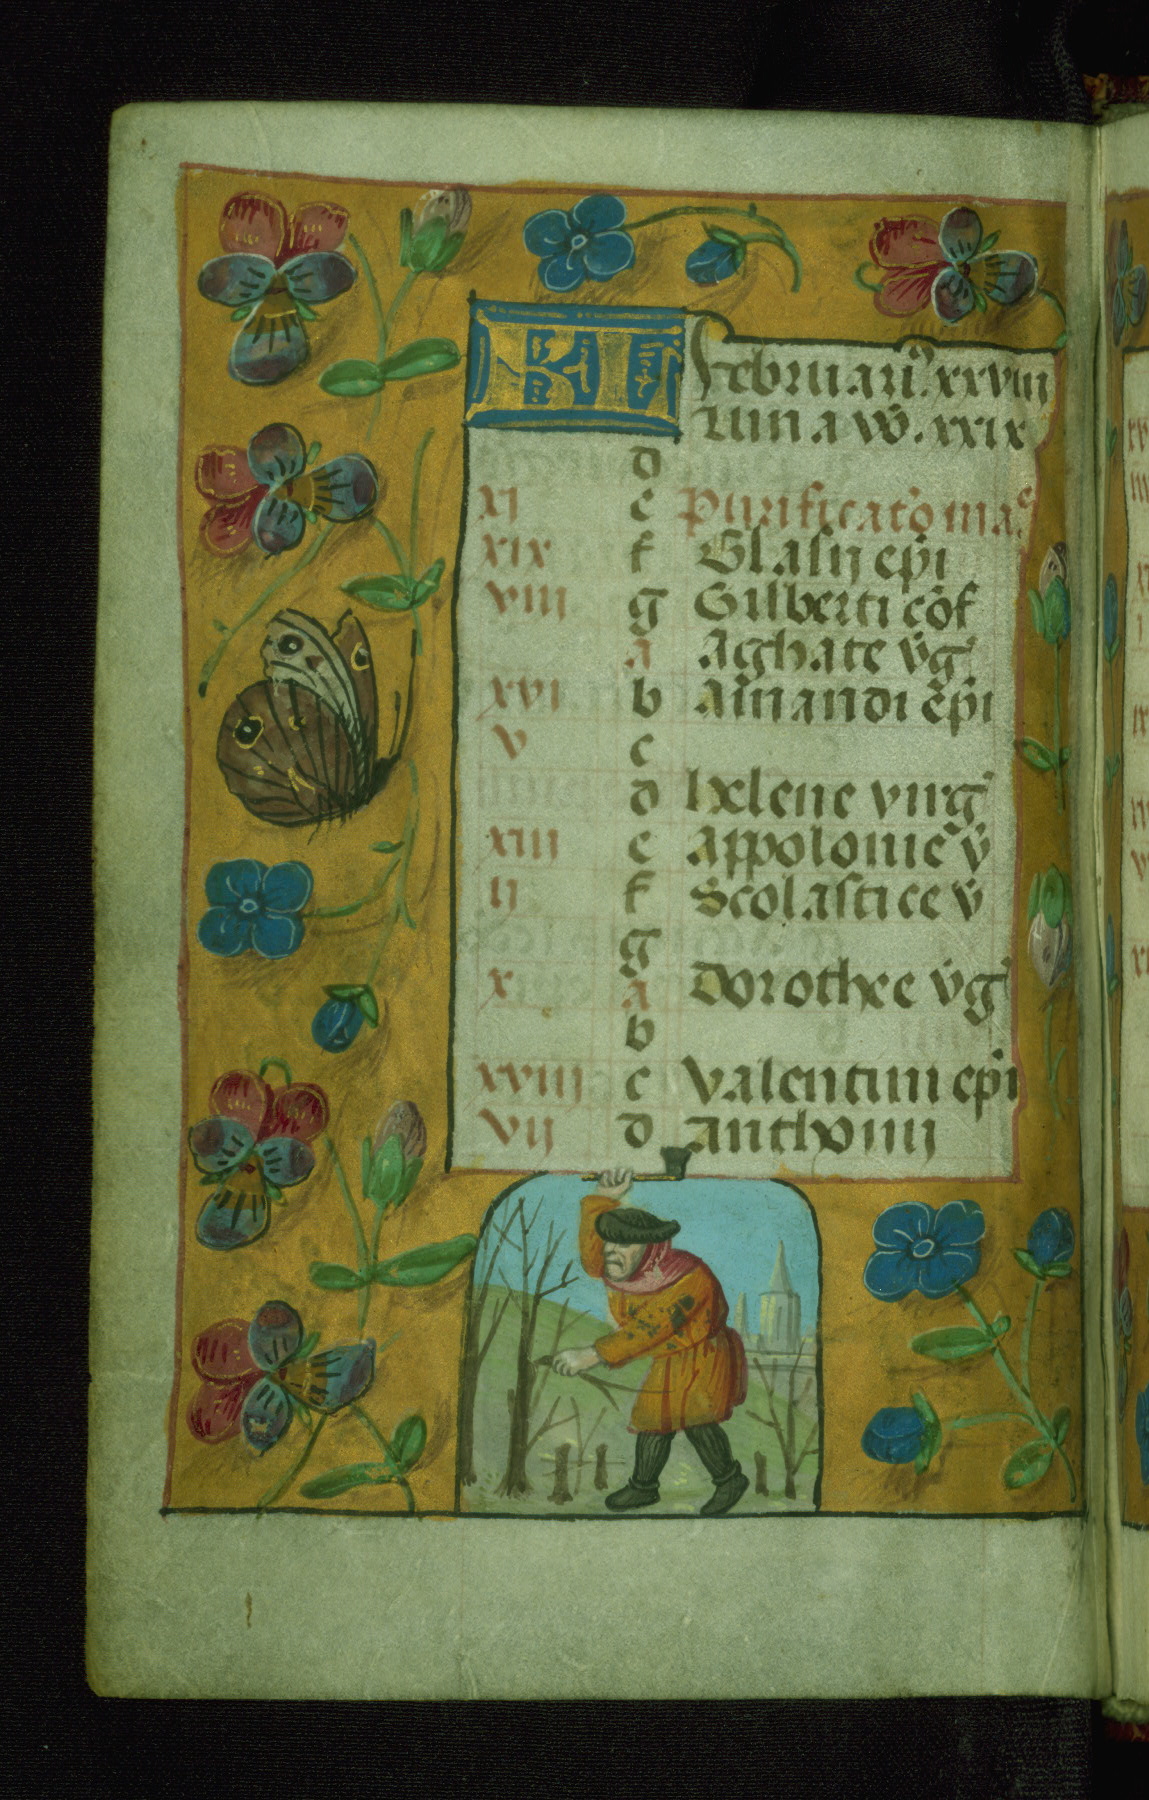 KL Februari⁹ .xxviii
Luna vo̅ .xxix
d
xj e Purificato̅ ma.ͤ
xix f Blasij ep̅i
viii g Gilberti co̅f
a Aghate v̅g᾿
xvi b Amandi ep̅i
v c
d helene virg᾿
xiii e Appolonie v̅
ij f Scolastice v̅
g
x a Dorothee v̅g᾿
b
xviii c Valentini ep̅i
vij d